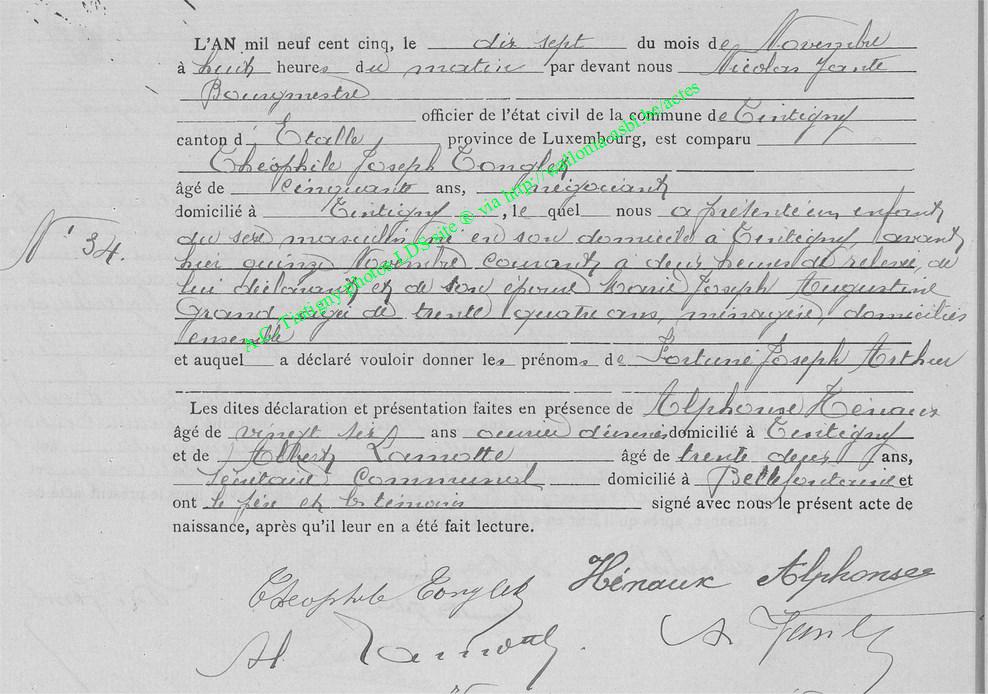 L'AN mil neuf cent cinq, le dix sept du mois de Novembre
à huit heures du matin par devant nous Nicolas
Bourgmestre
officier de l'état civil de la commune de Tintigny
canton d' Etalle province de Luxembourg, est comparu
Théophile Joseph Tonglet
âgé de cinquante ans, négociant
domicilié à Tintigny, le quel nous a présenté un enfant
N° 34.
du sexe masculin né en son domicile à Tintigny avant
hier quinze Novembre courant à deux heures de relevée, de
lui déclarant et de son épouse Marie Joseph Augustine
Grand, âgée de trente quatre ans, ménagère, domiciliés
ensemble
et auquel a déclaré vouloir donner les prénoms de Fortuné Joseph Arthur
Les dites déclaration et présentation faites en présence de Alphonse Hénaux
âgé de vingt six ans ouvrier d'usines domicilié à Tintigny
et de Albert Lamotte âgé de trente deux ans,
secrétaire communal domicilié à Bellefontaine et
ont le père et les témoins signé avec nous le présent acte de
naissance, après qu'il leur en a été fait lecture.
A.C. Tintigny photos LDS site ® via http://wallonia-asbl.be/actes
Théophile Tonglet Hénaux Alphonse
Al. Lamotte